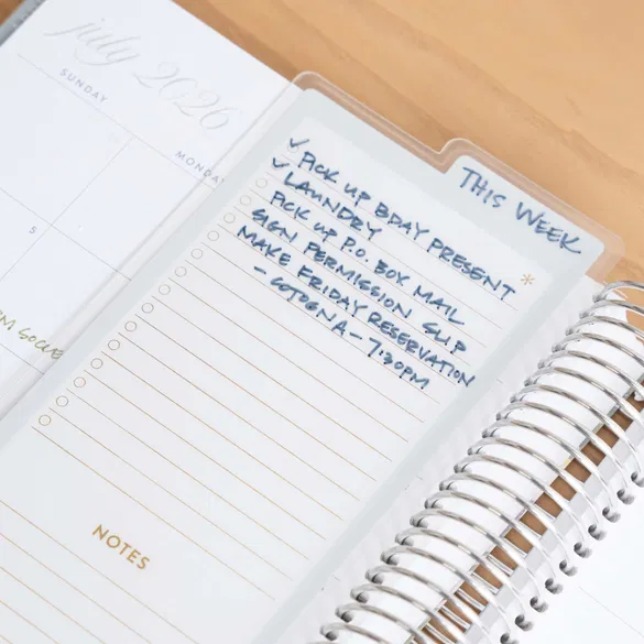 july 2026
SUNDAY
MONDAY
5
THIS WEEK
✓ PICK UP BDAY PRESENT *
✓ LAUNDRY
PICK UP P.O. BOX MAIL
SIGN PERMISSION SLIP
MAKE FRIDAY RESERVATION
- COTOGNA - 7:30PM
NOTES